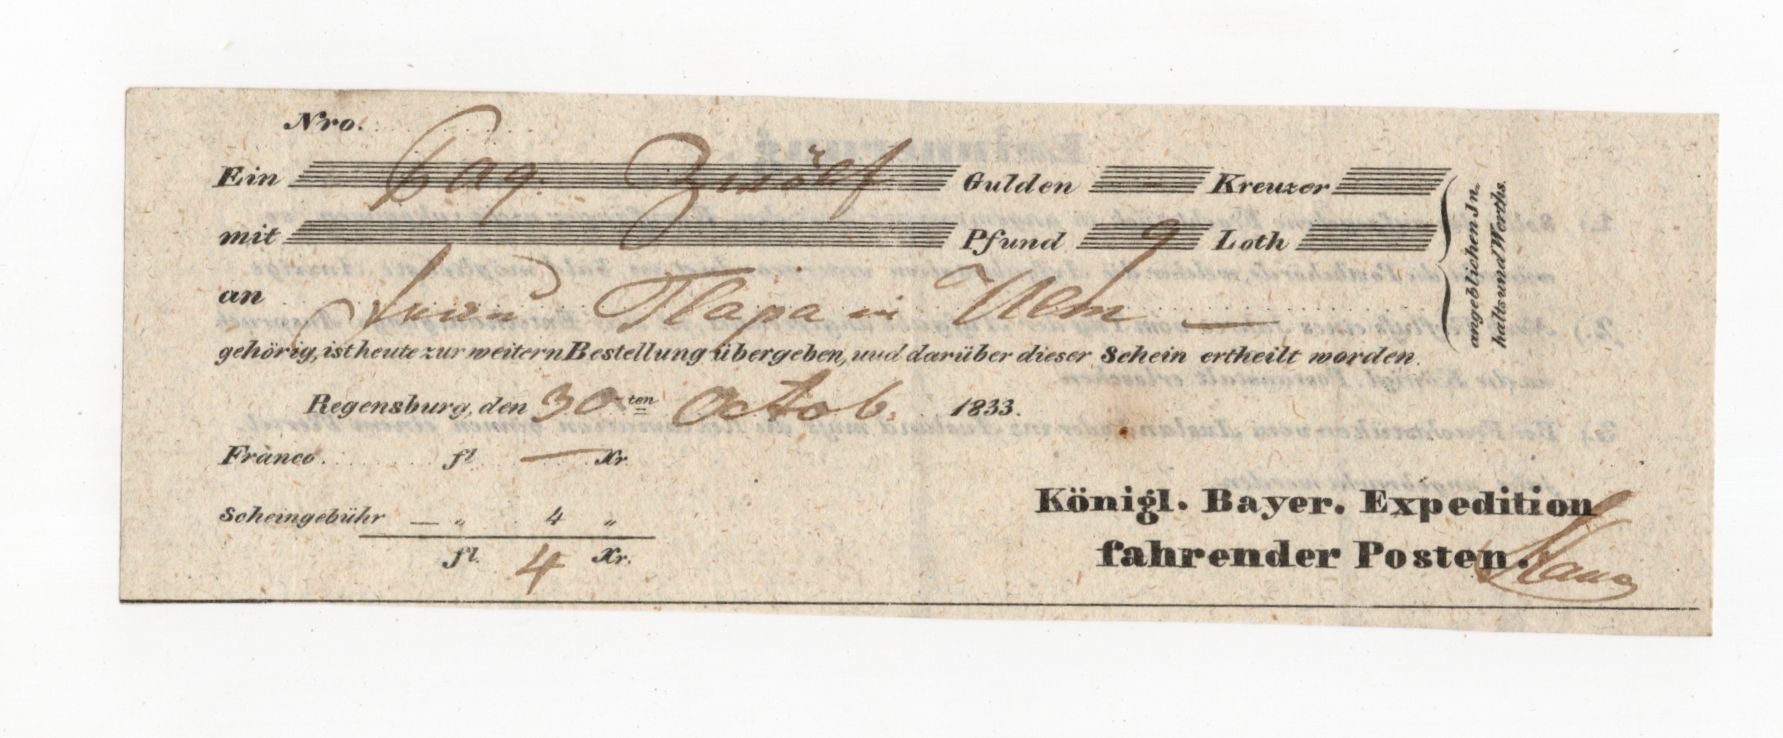 Nro.
Ein Paq. Zwölf Gulden - Kreuzer
mit Pfund 9 Loth
angeblichen In-
halts und Werths.
an in Ulm —
gehörig, ist heute zur weitern Bestellung übergeben, und darüber dieser Schein ertheilt worden.
Regensburg, den 30 ten Octob. 1833.
Franco. fl — Xr
Scheingebühr — „ 4 „
fl. 4 Xr.
Königl. Bayer. Expedition
fahrender Posten.